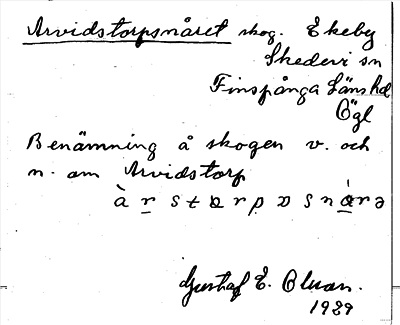 Arvidstorpsnåret skog. Ekeby
Skedevi sn
Finspånga Läns hd
Ögl
Benämning å skogen v. och
n. om Arvidstorp
Gustaf E.
1929